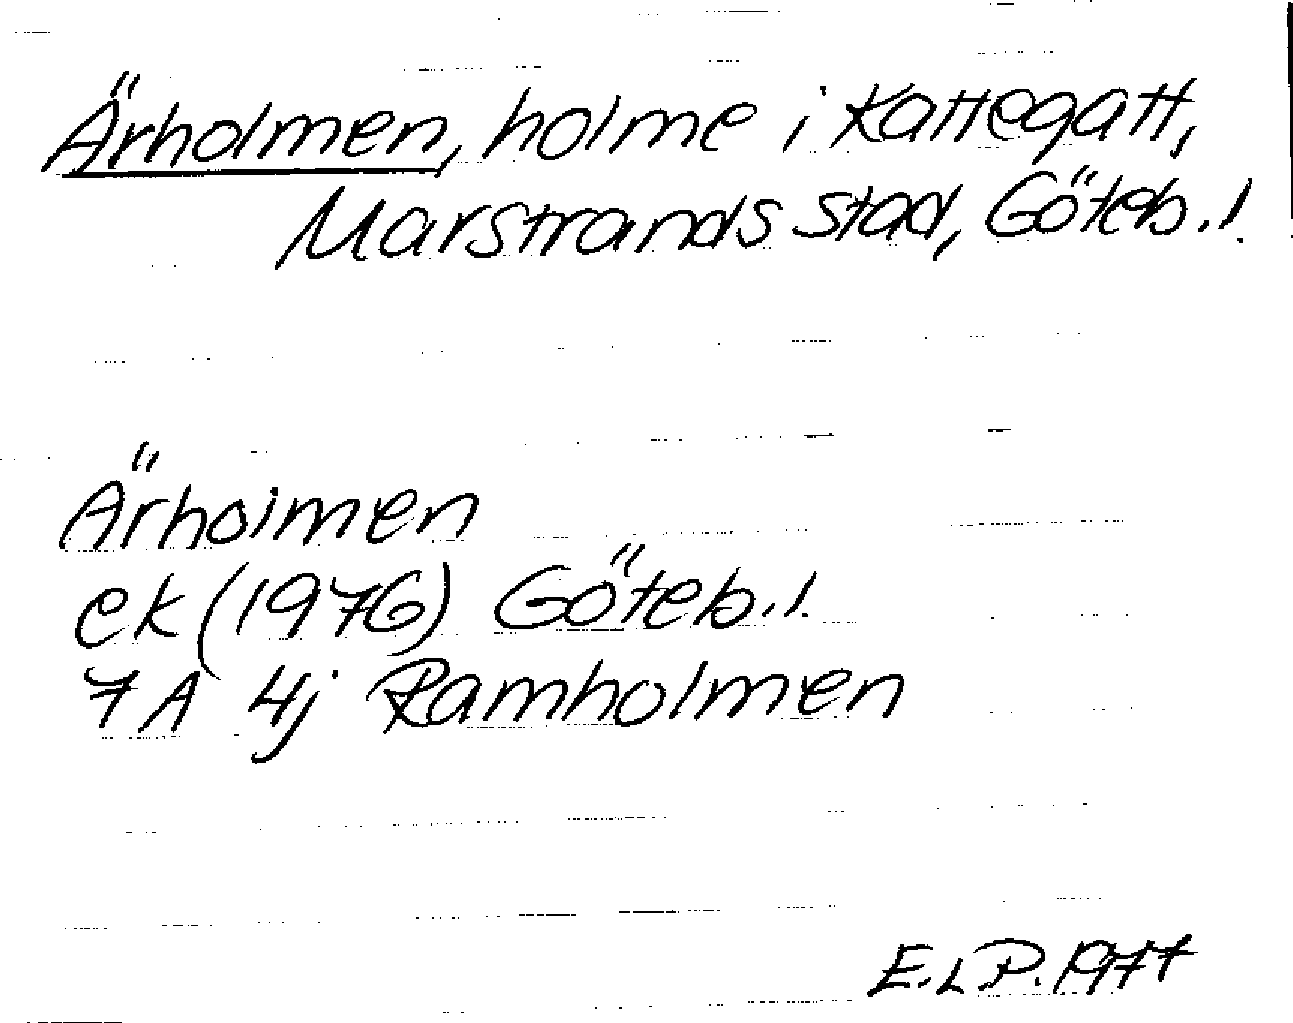 Ärholmen, holme i Kattegatt,
Marstrands stad, Göteb. l.
Ärholmen
ek (1976) Göteb. l.
7A 4j Ramholmen
E.L.P. 1977